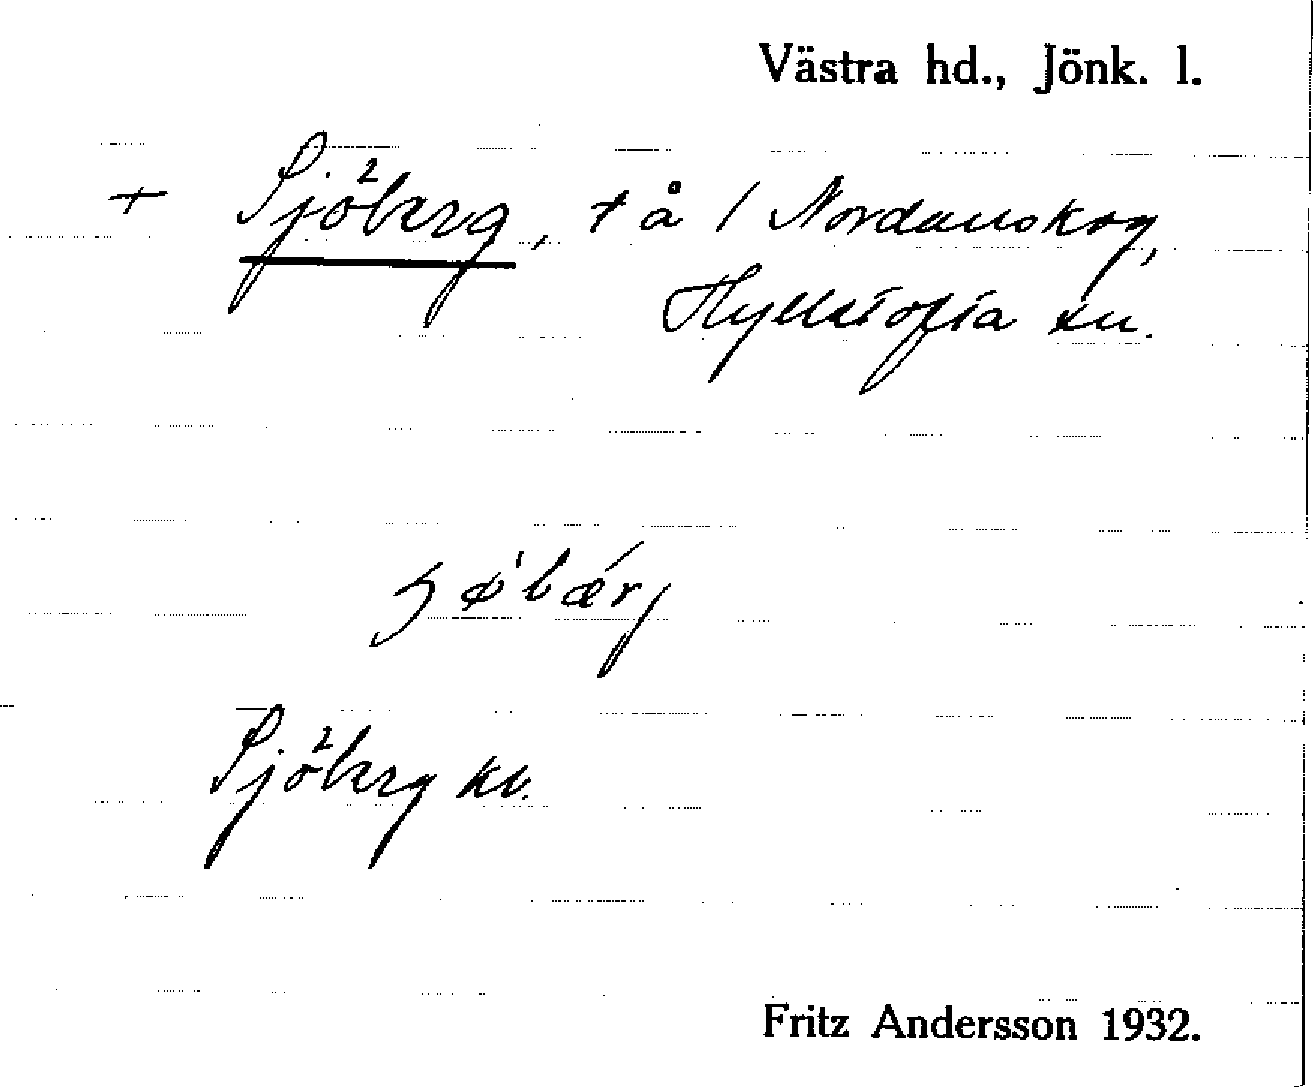 Västra hd., Jönk. l.
+ Sjöberg, † å / Nordanskog,
Hylletofta sn.
Sjöberg kv.
Fritz Andersson 1932.